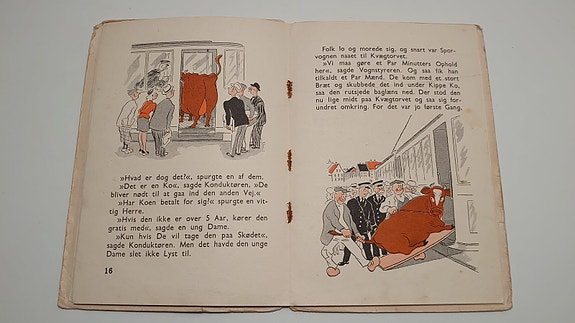 »Hvad er dog det!«, spurgte en af dem.
»Det er en Ko«, sagde Konduktøren, »De
bliver nødt til at gaa ind den anden Vej.«
»Har Koen betalt for sig!« spurgte en vit-
tig Herre.
»Hvis den ikke er over 5 Aar, kører den
gratis med«, sagde en ung Dame.
»Kun hvis De vil tage den paa Skødet«,
sagde Konduktøren. Men det havde den unge
Dame slet ikke Lyst til.
16
Folk lo og morede sig, og snart var Spor-
vognen naaet til Kvægtorvet.
»Vi maa gøre et Par Minutters Ophold
her«, sagde Vognstyreren. Og saa fik han
tilkaldt et Par Mænd. De kom med et stort
Bræt og skubbede det ind under Kippe Ko,
saa den rutsjede baglæns ned. Der stod den
nu lige midt paa Kvægtorvet og saa sig for-
undret omkring. For det var jo første Gang,